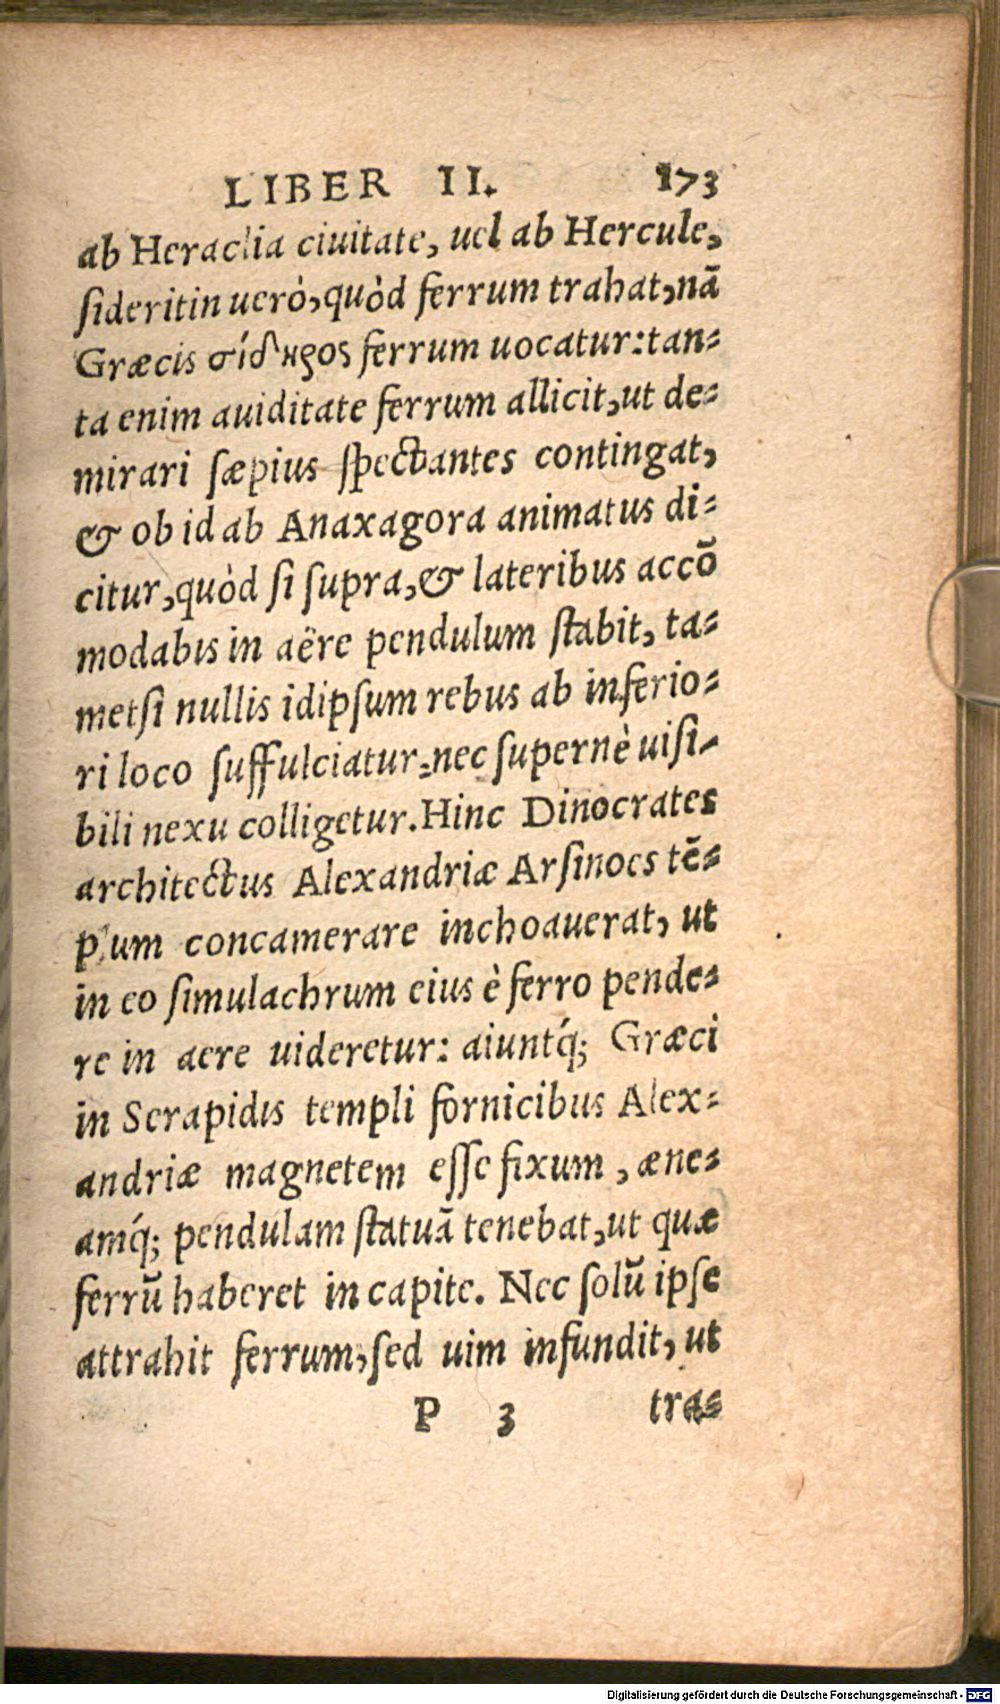 LIBER II. 173
ab Heraclia ciuitate, uel ab Hercule,
sideritin uerò, quòd ferrum trahat, nã
Græcis σίδηρος ferrum uocatur: tan-
ta enim auiditate ferrum allicit, ut de-
mirari sæpius spectantes contingat,
& ob id ab Anaxagora animatus di-
citur, quòd si supra, & lateribus accõ
modabis in aëre pendulum stabit, ta-
metsi nullis idipsum rebus ab inferio-
ri loco suffulciatur, nec supernè uisi-
bili nexu colligetur. Hinc Dinocrates
architectus Alexandriæ Arsinoes tẽ-
plum concamerare inchoauerat, ut
in eo simulachrum eius è ferro pende-
re in aere uideretur: aiuntq́; Græci
in Serapidis templi fornicibus Alex-
andriæ magnetem esse fixum, æne-
amq́; pendulam statuã tenebat, ut quæ
ferrũ haberet in capite. Nec solũ ipse
attrahit ferrum, sed uim infundit, ut
P 3 tra-
Digitalisierung gefördert durch die Deutsche Forschungsgemeinschaft - DFG